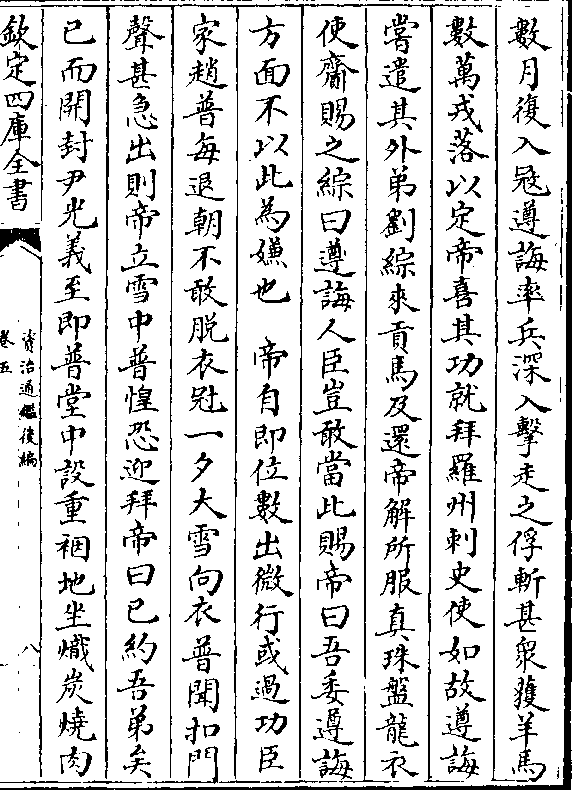 數月復入冦遵誨率兵深入擊走之俘斬甚衆獲羊馬
數萬戎落以定帝喜其功就拜羅州刺史使如故遵誨
嘗遣其外弟劉綜來貢馬及還帝解所服真珠盤龍衣
使齎賜之綜曰遵誨人臣豈敢當此賜帝曰吾委遵誨
方面不以此為嫌也　帝自即位數出微行或過功臣
家趙普每退朝不敢脱衣冠一夕大雪向衣普聞扣門
聲甚急出則帝立雪中普惶恐迎拜帝曰已約吾弟矣
已而開封尹光義至即普堂中設重裀地坐熾炭燒肉
欽定四庫全書
資治通鑑後編
卷五
八